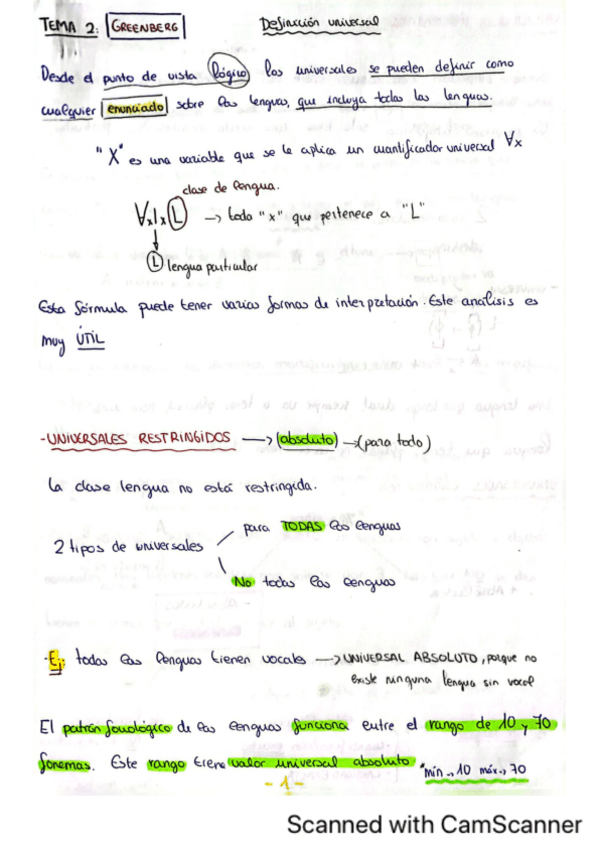 TEMA 2: GREENBERG Definición universal
Desde el punto de vista lógico los universales se pueden definir como
cualquier enunciado sobre las lenguas, que incluya todas las lenguas.
"X" es una variable que se le aplica un cuantificador universal ∀x
clase de lengua.
∀x|x L → todo "x" que pertenece a "L"
L lengua particular
Esta fórmula puede tener varias formas de interpretación. Este análisis es
muy ÚTIL
-UNIVERSALES RESTRINGIDOS → (absoluto) → (para todo)
La clase lengua no está restringida.
para TODAS las lenguas
2 tipos de universales
No todas las lenguas
·Ej: todas las lenguas tienen vocales → UNIVERSAL ABSOLUTO, porque no
existe ninguna lengua sin vocal
El patrón fonológico de las lenguas funciona entre el rango de 10 y 70
fonemas. Este rango tiene valor universal absoluto *mín → 10 máx → 70
- 1 -
Scanned with CamScanner